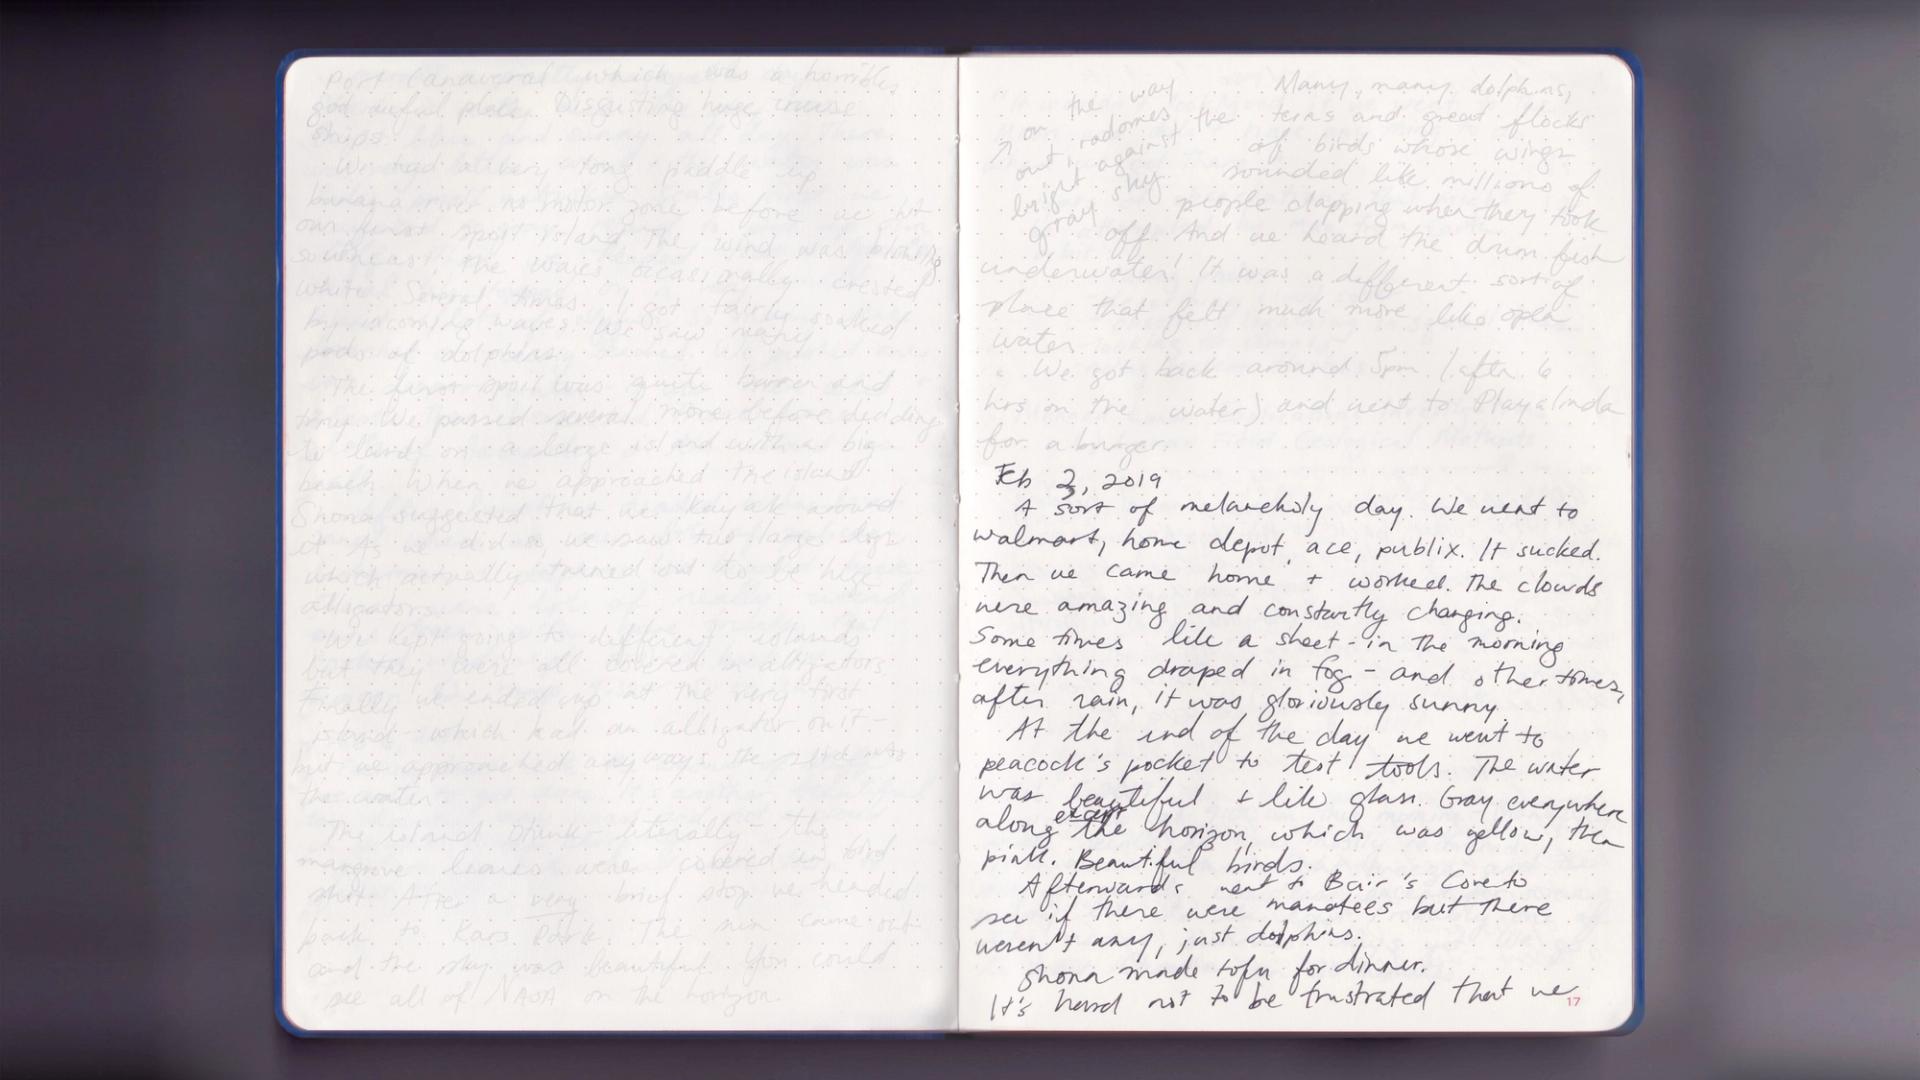 Port Canaveral which was a horrible
god awful place. Disgusting huge cruise
ships.
We had a very long paddle up
banana river no motor zone before we hit
our first spoil island. The wind was blowing
southeast, the waves occasionally crested
white. Several times I got fairly soaked
by incoming waves. We saw many
pods of dolphins.
The first spoil was quite barren and
tiny. We passed several more before deciding
to land on a large island with a big
beach. When we approached the island
Shona suggested that we kayak around
it. As we did so we saw two large logs
which actually turned out to be huge
alligators.
We kept going to different islands
but they were all covered in alligators.
Finally we ended up at the very first
island - which had an alligator on it -
but we approached anyways.
the water.
The island stunk - literally - the
mangrove leaves were covered in bird
shit. After a very brief stop we headed
back to Kars Park. The sun came out
and the sky was beautiful. You could
see all of NASA on the horizon.
↗ on the way
out, radomes
bright against the
gray sky
Many, many dolphins,
terns and great flocks
of birds whose wings
sounded like millions of
people clapping when they took
off. And we heard the drum fish
underwater! It was a different sort of
place that felt much more like open
water.
We got back around 5pm (after 6
hrs on the water) and went to Playalinda
for a burger.
Feb 2, 2019
A sort of melancholy day. We went to
walmart, home depot, ace, publix. It sucked.
Then we came home + worked. The clouds
were amazing and constantly changing.
Some times like a sheet - in the morning
everything draped in fog - and other times,
after rain, it was gloriously sunny.
At the end of the day we went to
peacock's pocket to test tools. The water
was beautiful + like glass. Gray everywhere
except
along the horizon, which was yellow, then
pink. Beautiful birds.
Afterwards went to Bair's Cove to
see if there were manatees but there
weren't any, just dolphins.
Shona made tofu for dinner.
It's hard not to be frustrated that we
17